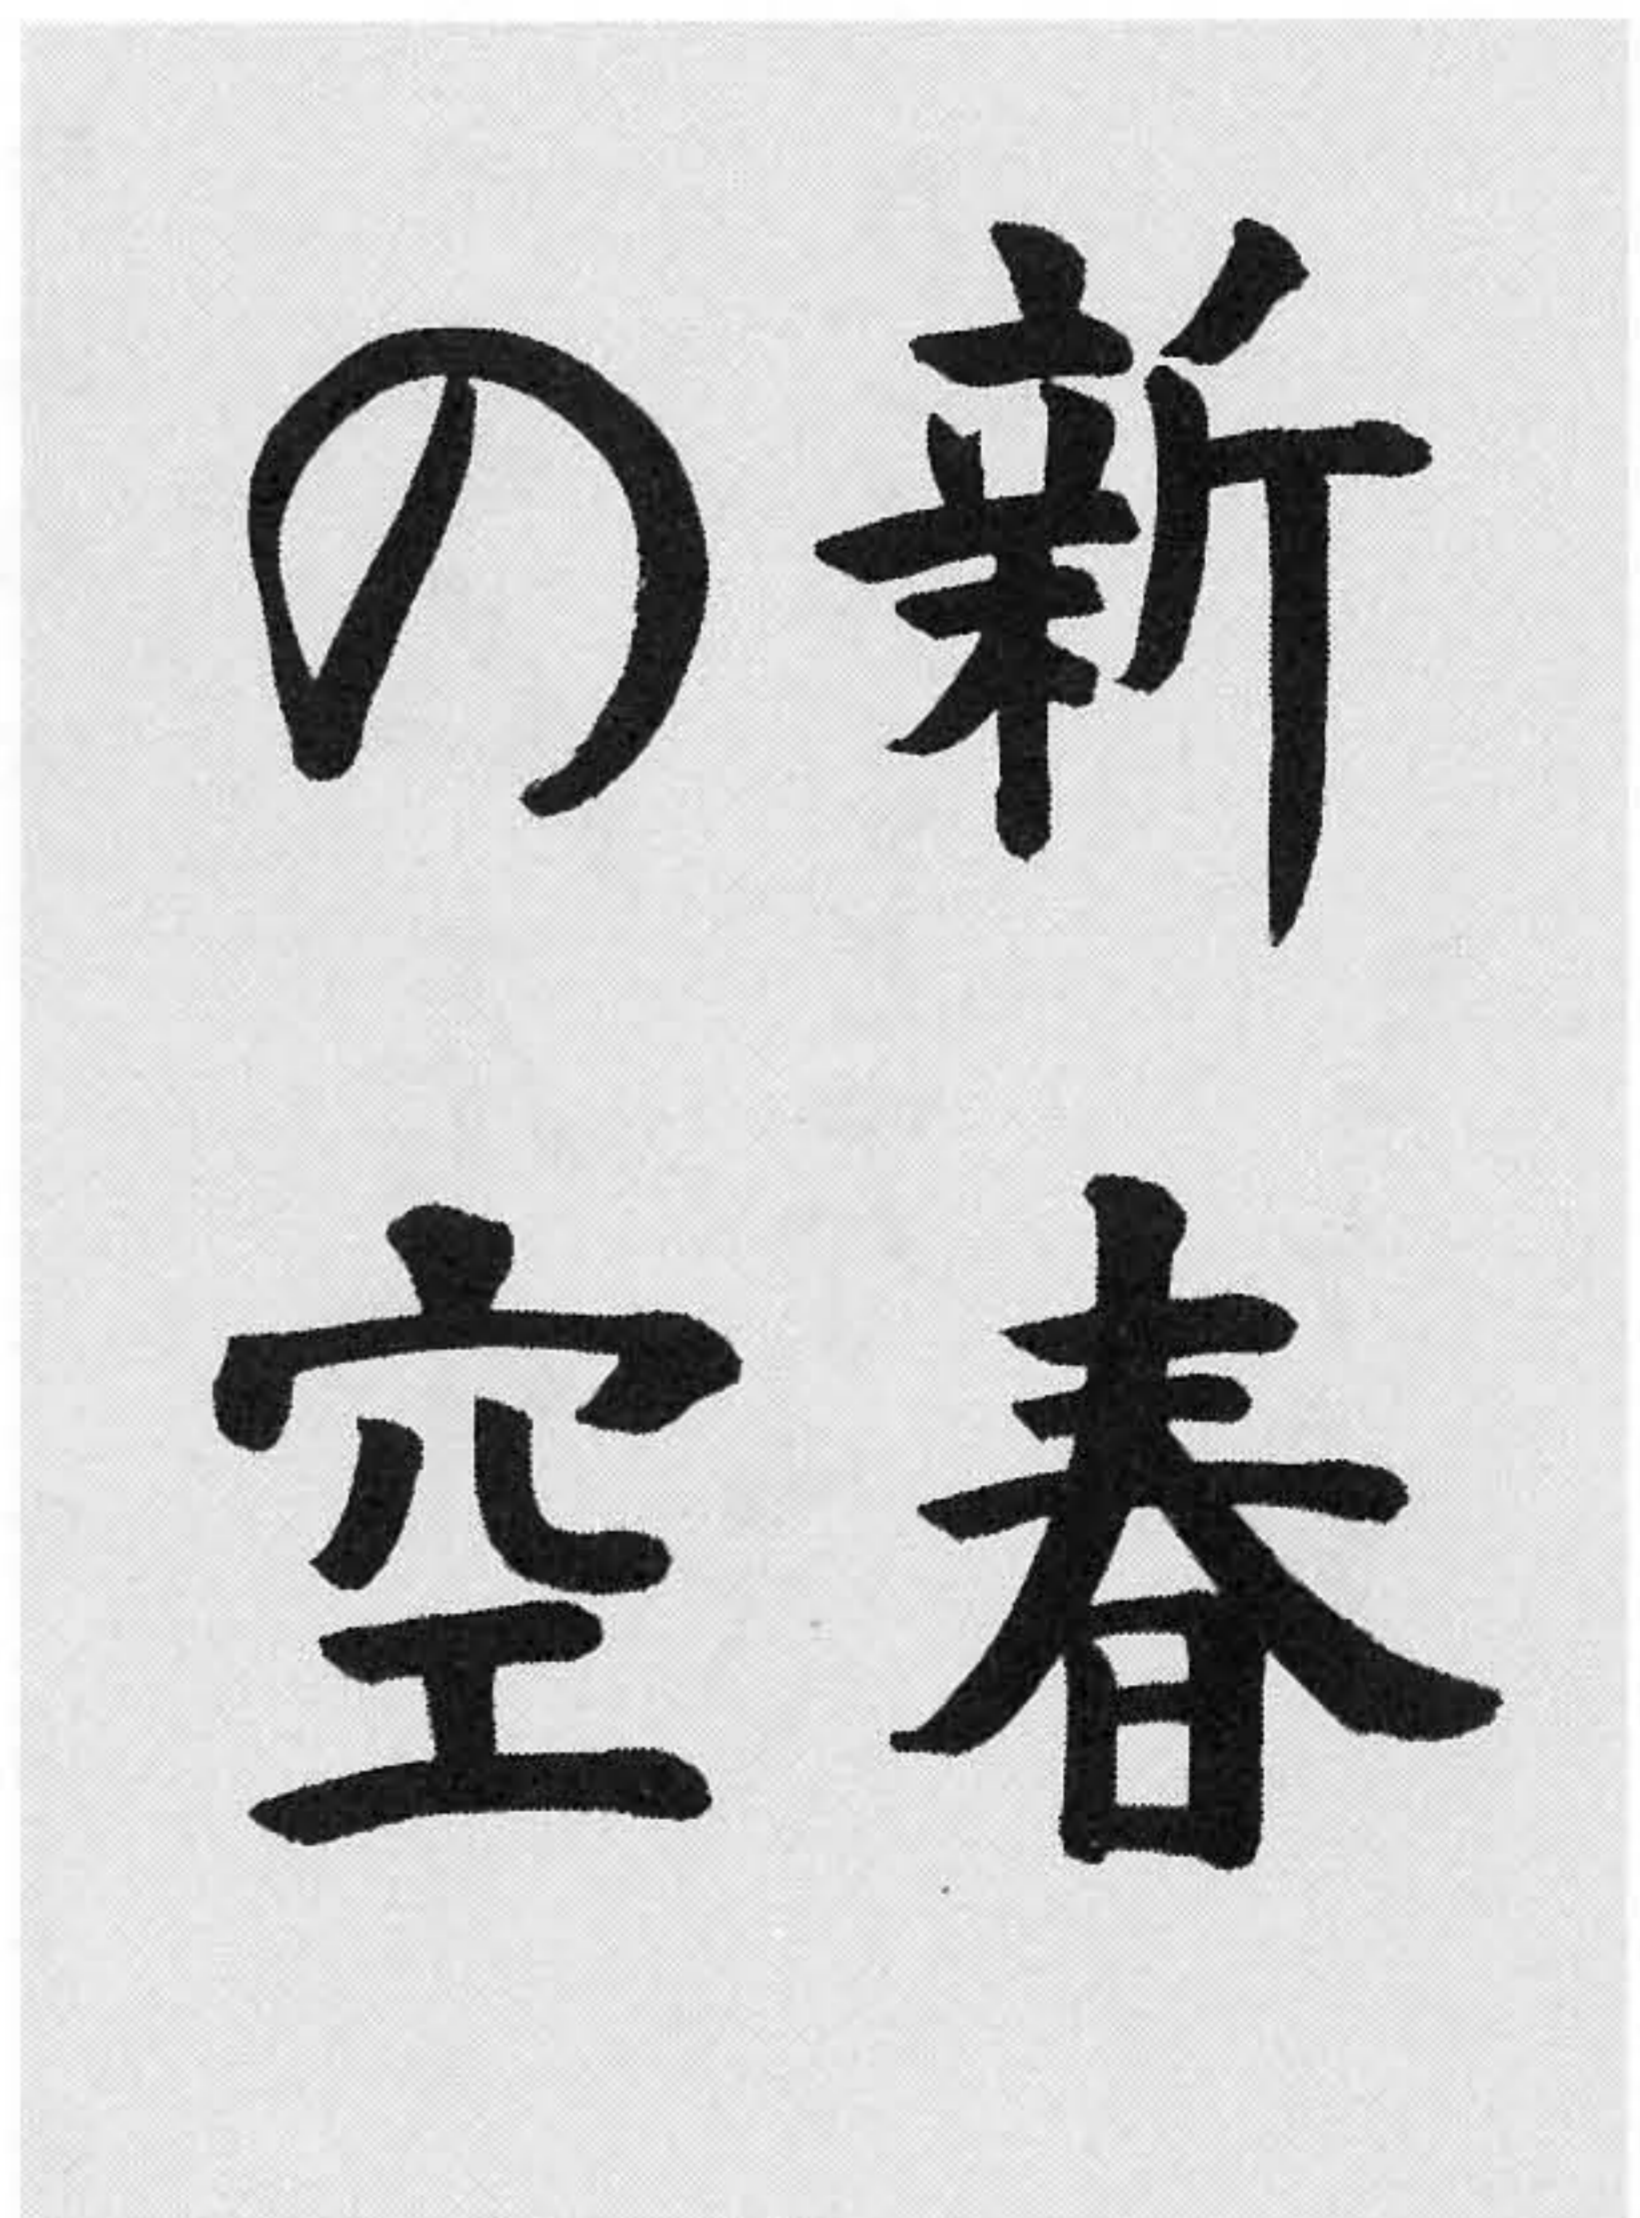 新春
の空